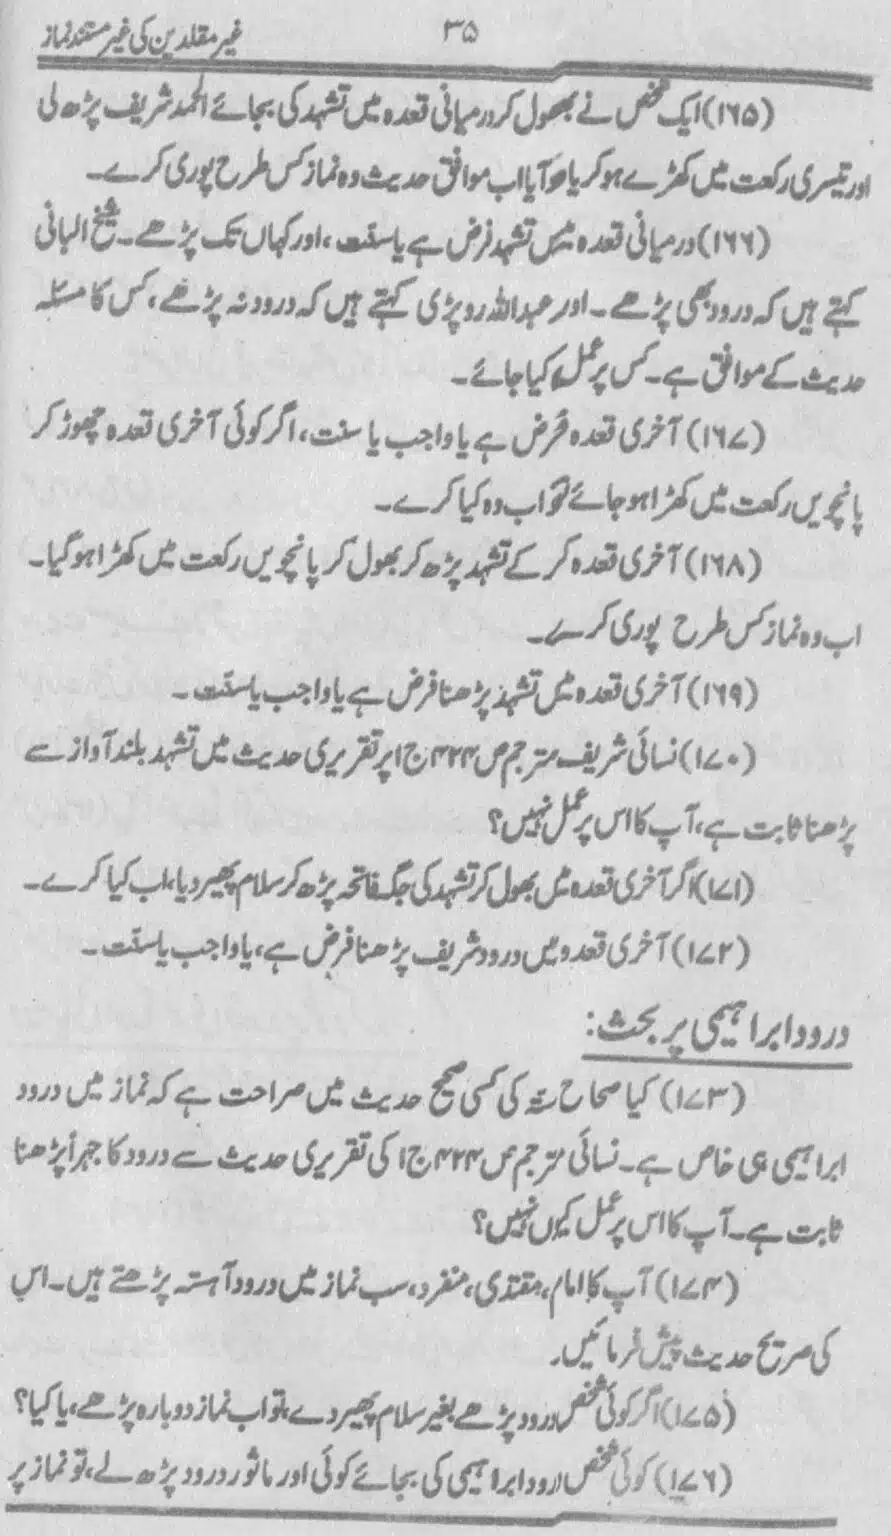 غیر مقلدین کی غیر مستند نماز
۳۵
(۱۶۵) ایک شخص نے بھول کر درمیانی قعدہ میں تشہد کی بجائے الحمد شریف پڑھ لی
اور تیسری رکعت میں کھڑے ہو کر یاد آیا اب موافق حدیث وہ نماز کس طرح پوری کرے۔
(۱۶۶) درمیانی قعدہ میں تشہد فرض ہے یا سنت، اور کہاں تک پڑھے۔ شیخ البانی
کہتے ہیں کہ درود بھی پڑھے۔ اور عبداللہ روپڑی کہتے ہیں کہ درود نہ پڑھے، کس کا مسئلہ
حدیث کے موافق ہے۔ کس پر عمل کیا جائے۔
(۱۶۷) آخری قعدہ فرض ہے یا واجب یا سنت، اگر کوئی آخری قعدہ چھوڑ کر
پانچویں رکعت میں کھڑا ہو جائے تو اب وہ کیا کرے۔
(۱۶۸) آخری قعدہ کر کے تشہد پڑھ کر بھول کر پانچویں رکعت میں کھڑا ہو گیا۔
اب وہ نماز کس طرح پوری کرے۔
(۱۶۹) آخری قعدہ میں تشہد پڑھنا فرض ہے یا واجب یا سنت۔
(۱۷۰) نسائی شریف مترجم ص ۴۲۴ ج ۱ پر تقریری حدیث میں تشہد بلند آواز سے
پڑھنا ثابت ہے، آپ کا اس پر عمل نہیں؟
(۱۷۱) اگر آخری قعدہ میں بھول کر تشہد کی جگہ فاتحہ پڑھ کر سلام پھیر دیا، اب کیا کرے۔
(۱۷۲) آخری قعدہ میں درود شریف پڑھنا فرض ہے، یا واجب یا سنت۔
درود ابراہیمی پر بحث:
(۱۷۳) کیا صحاح ستہ کی کسی صحیح حدیث میں صراحت ہے کہ نماز میں درود
ابراہیمی ہی خاص ہے۔ نسائی مترجم ص ۴۲۴ ج ۱ کی تقریری حدیث سے درود کا جہراً پڑھنا
ثابت ہے۔ آپ کا اس پر عمل کیوں نہیں؟
(۱۷۴) آپ کا امام، مقتدی، منفرد، سب نماز میں درود آہستہ پڑھتے ہیں۔ اس
کی صریح حدیث پیش فرمائیں۔
(۱۷۵) اگر کوئی شخص درود پڑھے بغیر سلام پھیر دے، تو اب نماز دوبارہ پڑھے، یا کیا؟
(۱۷۶) کوئی شخص درود ابراہیمی کی بجائے کوئی اور ماثور درود پڑھ لے، تو نماز پر